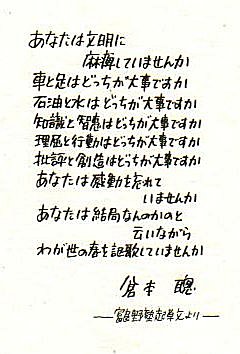 あなたは文明に
麻痺していませんか
車と足はどっちが大事ですか
石油と水はどっちが大事ですか
知識と智恵はどっちが大事ですか
理屈と行動はどっちが大事ですか
批評と創造はどっちが大事ですか
あなたは感動を忘れて
いませんか
あなたは結局なんのかのと
云いながら
わが世の春を謳歌していませんか
倉本 聰
——富良野塾起草文より——